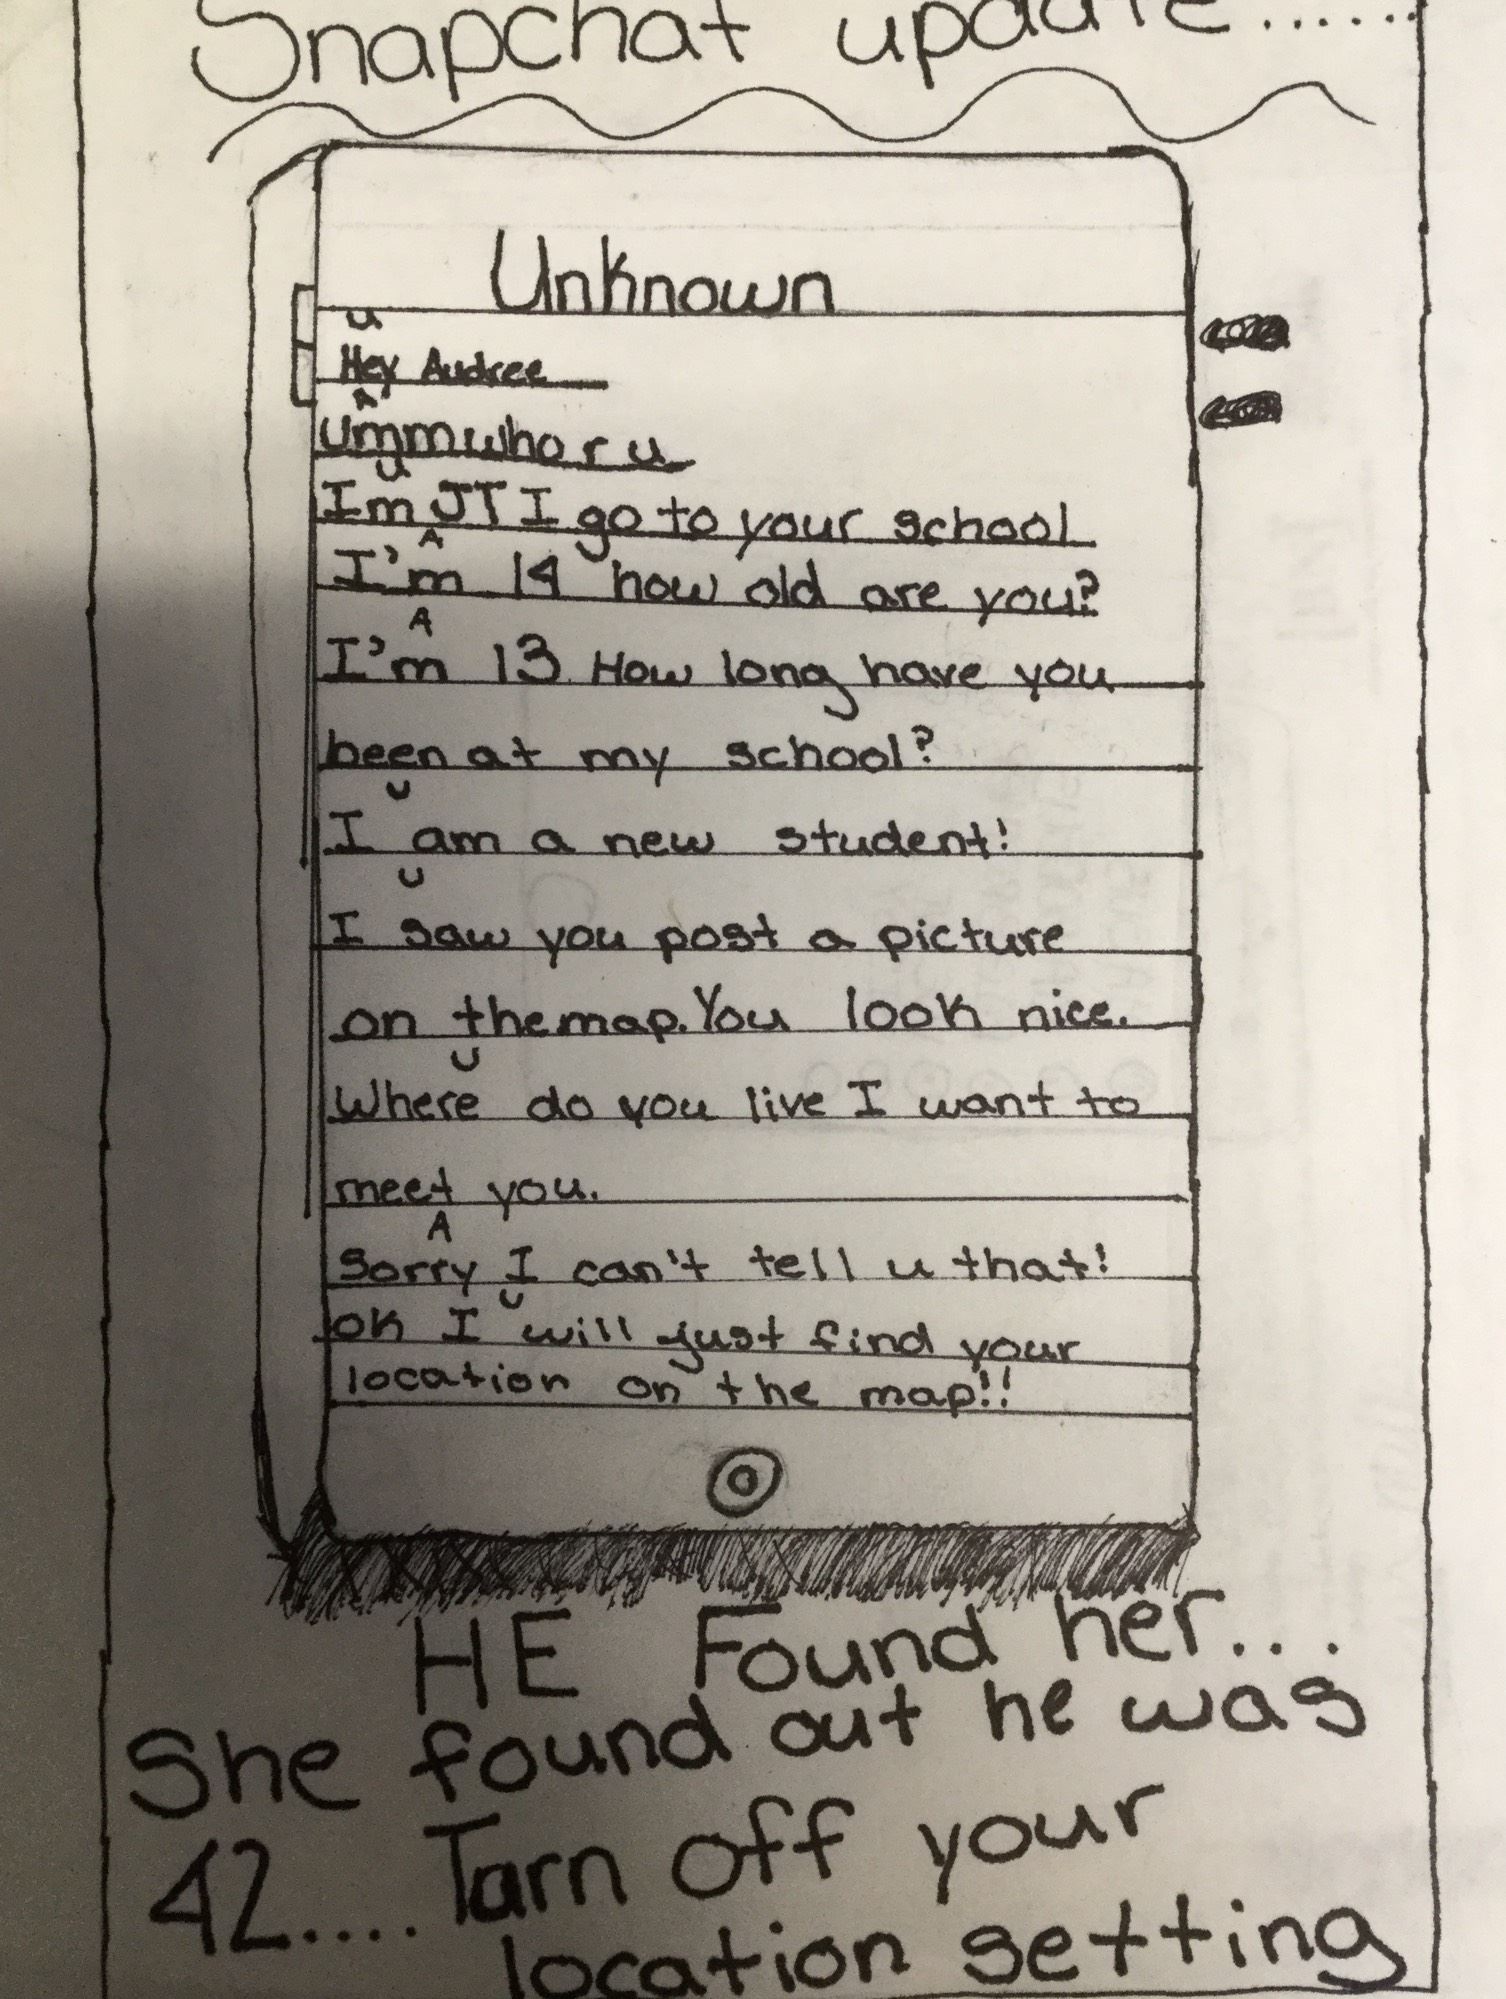 Snapchat update......
Unknown
u
Hey Audree
A
Ummm who r u
u
Im JT I go to your school
A
I'm 14 how old are you?
A
I'm 13 How long have you
been at my school?
u
I am a new student!
u
I saw you post a picture
on the map. You look nice.
u
Where do you live I want to
meet you.
A
Sorry I can't tell u that!
u
ok I will just find your
location on the map!!
HE Found her...
She found out he was
42.... Tarn off your
location setting